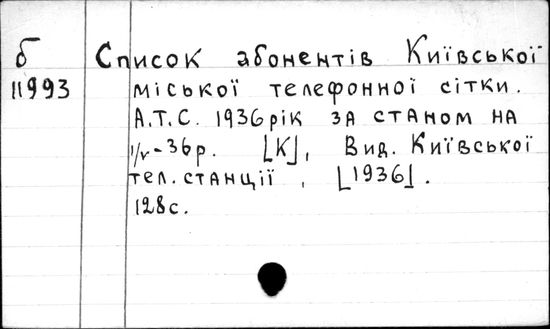 б
11993
Список абонентів Київської
міської телефонної сітки.
А.Т.С. 1936 рік за станом на
1/V-36р. [К], Вид. Київської
тел. станції, [1936].
128с.